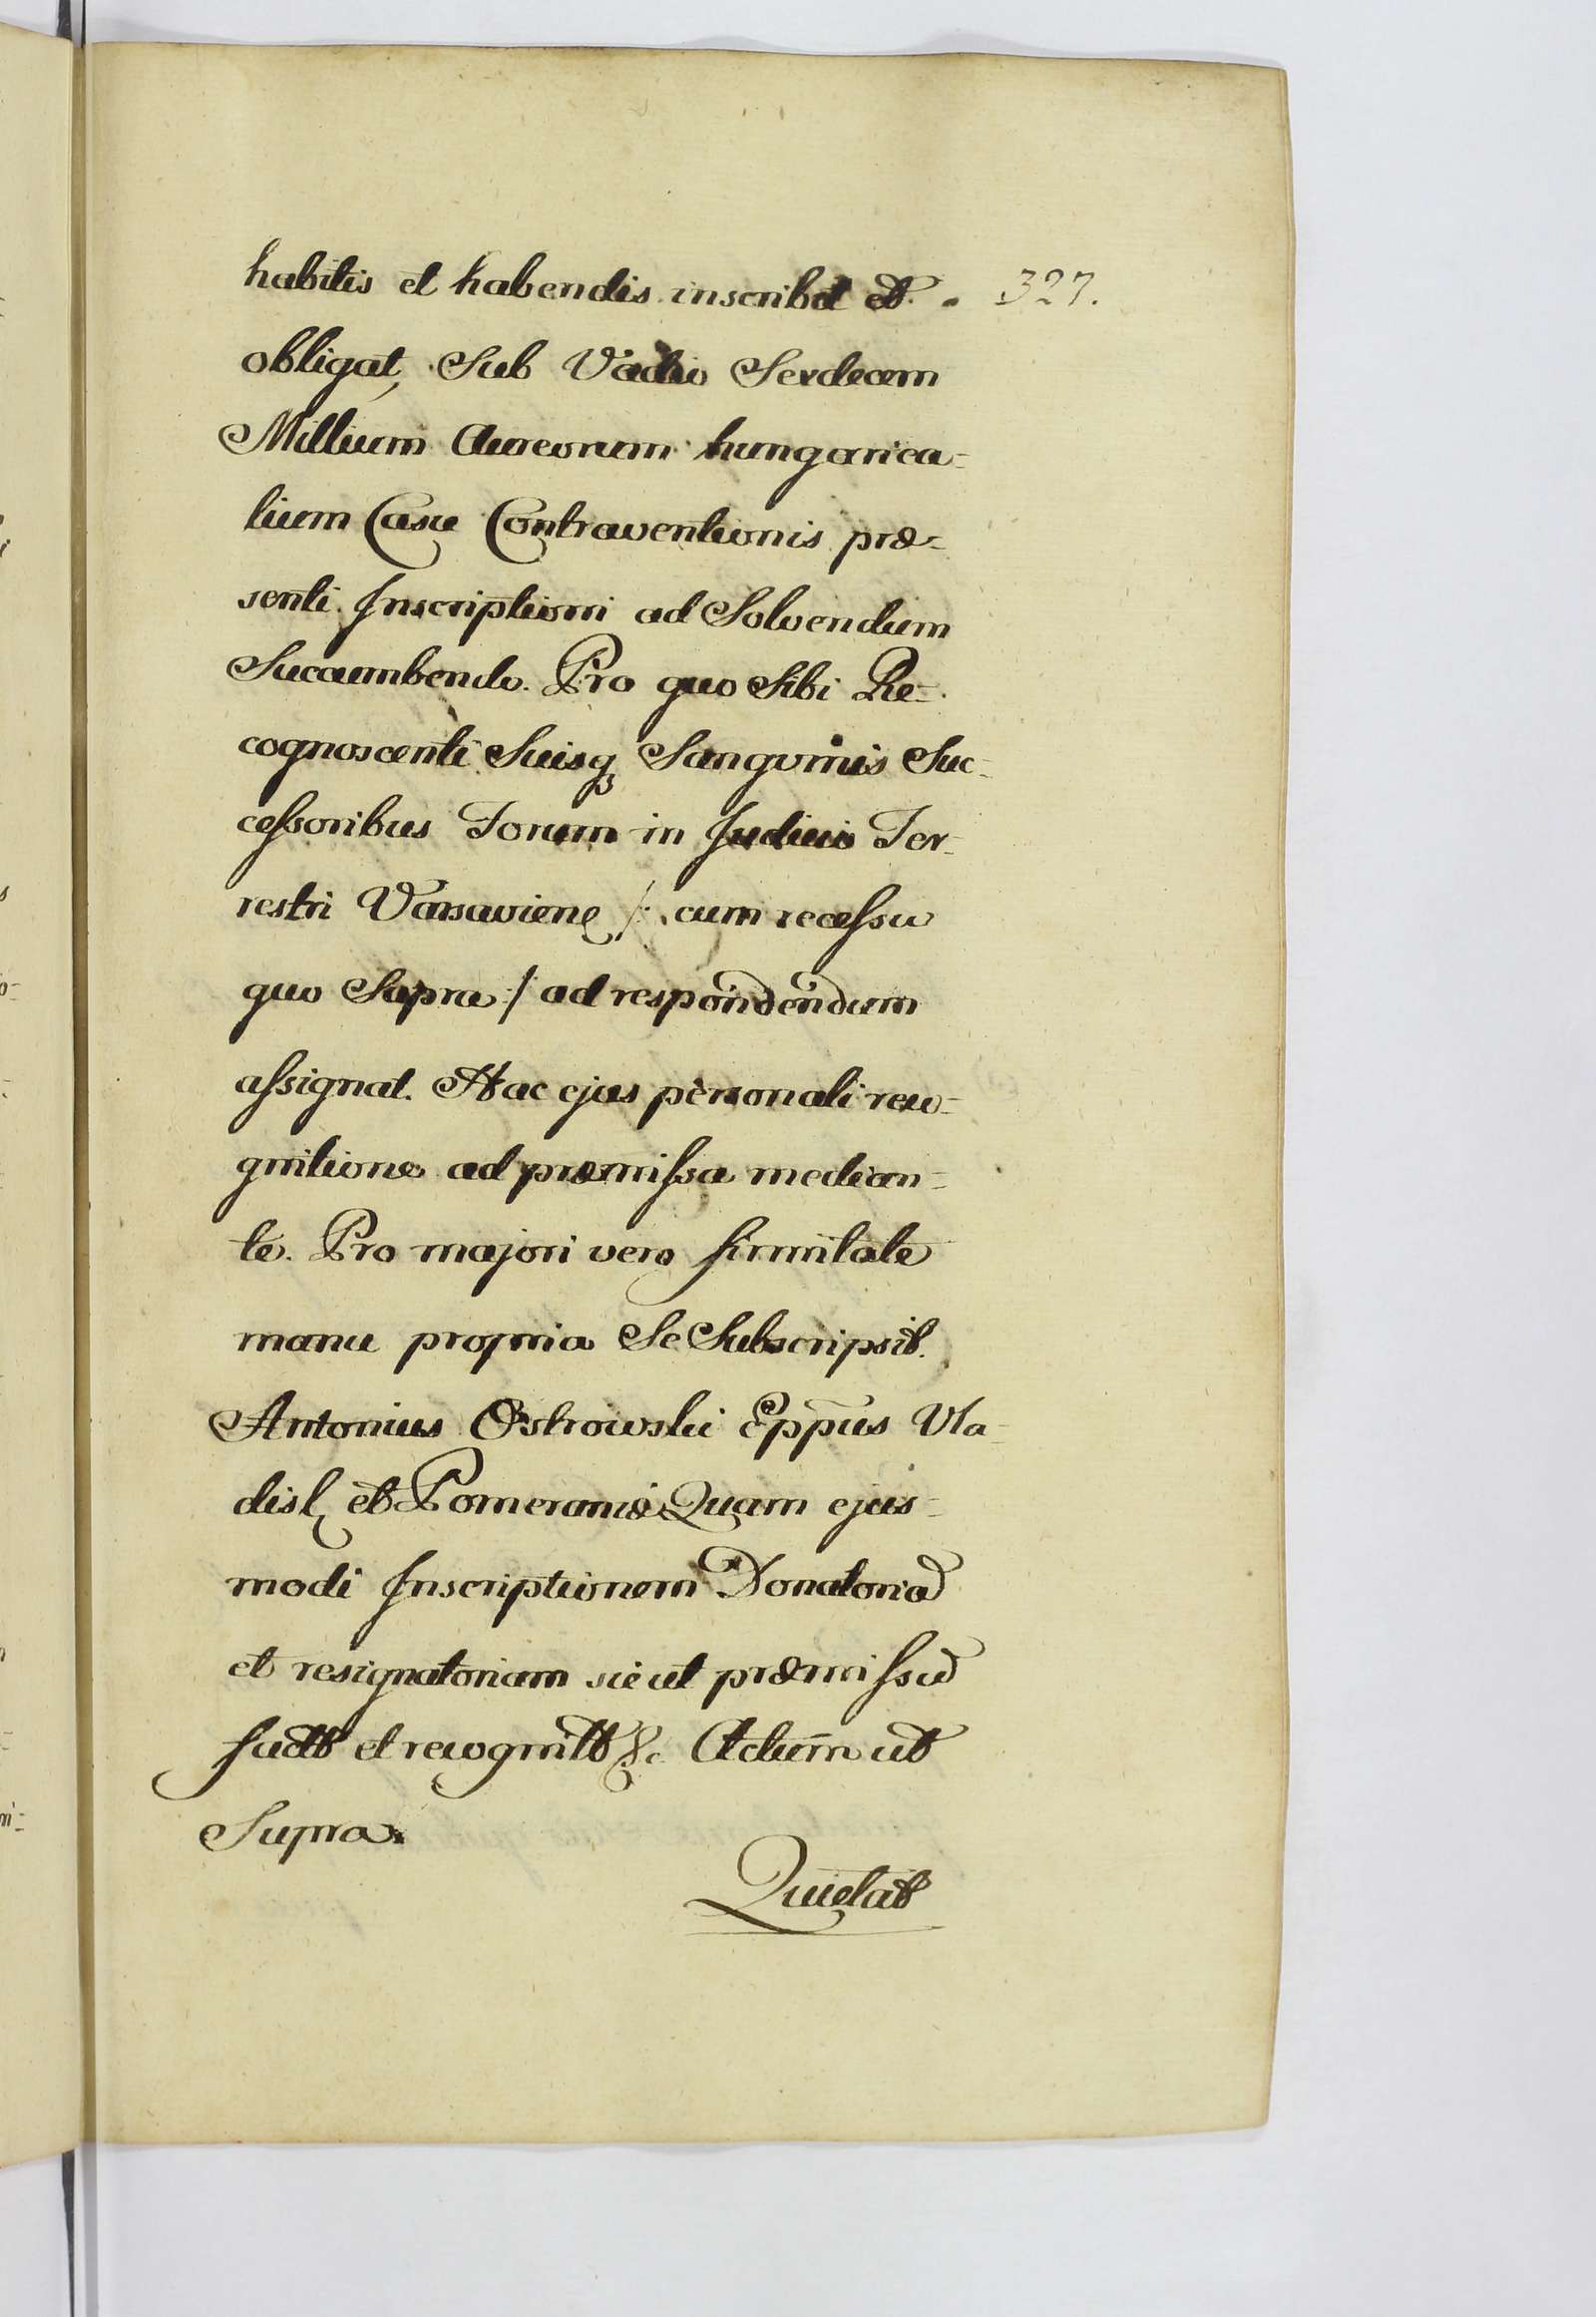 habitis et habendis inscribit et 327.
obligat, Sub Vadio Sexdecem
Millium Aureorum hungarica=
lium Casu Contraventionis præ=
senti Inscriptioni ad Solvendum
Succumbendo. Pro quo Sibi Re=
cognoscenti Suisq̃ Sangvinis Suc=
cessoribus Forum in Judicio Ter=
restri Varsavienẽ /: cum recessu
quo Supra :/ ad respondendum
assignat. Hac ejus personali reco=
gnitione ad præmissa median=
te. Pro majori vero firmitate
manu propria Se Subscripsit.
Antonius Ostrowski Epp̃us Vla=
disl. et Pomeraniæ Quam ejus=
modi Inscriptionem Donatoriã
et resignatoriam sicut præmissũ
fact et recognitt &c. Actum ut
Supra.
Quietat